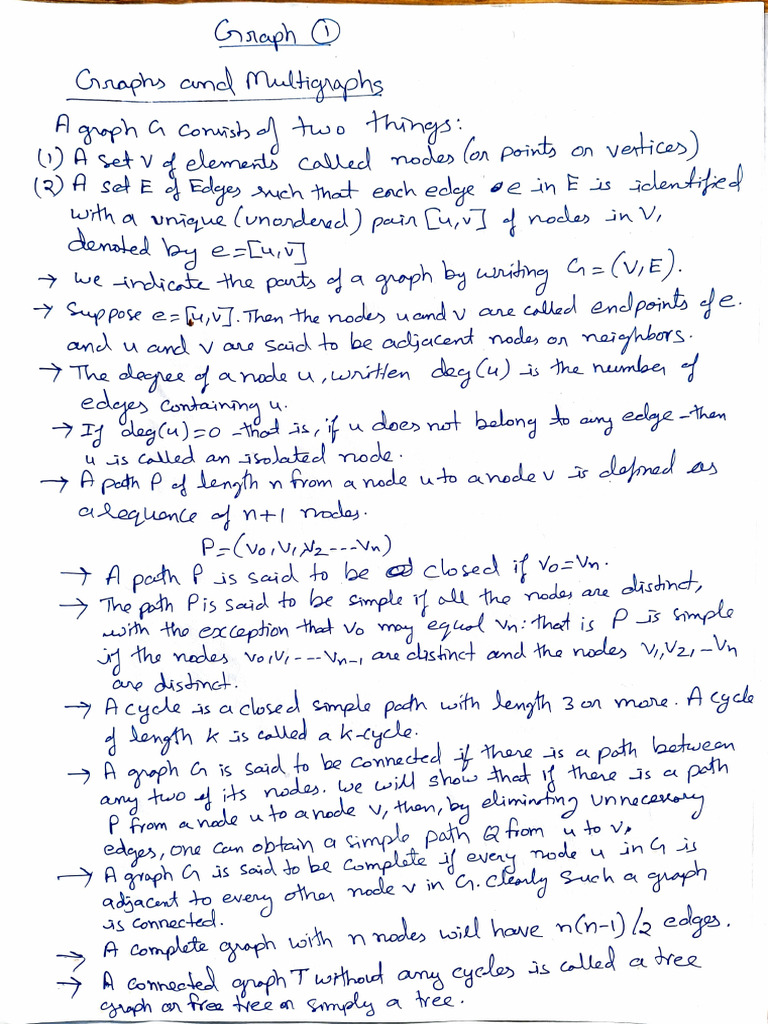 Graph ①
Graphs and Multigraphs
A graph G consists of two things:
(1) A set V of elements called nodes (or points or vertices)
(2) A set E of Edges such that each edge e in E is identified
with a unique (unordered) pair [u,v] of nodes in V,
denoted by e=[u,v]
→ we indicate the parts of a graph by writing G=(V,E).
→ Suppose e=[u,v]. Then the nodes u and v are called endpoints of e.
and u and v are said to be adjacent nodes or neighbors.
→ The degree of a node u, written deg(u) is the number of
edges containing u.
→ If deg(u)=0 -that is, if u does not belong to any edge -then
u is called an isolated node.
→ A path P of length n from a node u to a node v is defined as
a sequence of n+1 nodes.
P=(v0,v1,v2---vn)
→ A path P is said to be closed if v0=vn.
→ The path P is said to be simple if all the nodes are distinct,
with the exception that v0 may equal vn: that is P is simple
if the nodes v0,v1,---vn-1, are distinct and the nodes v1,v2,-vn
are distinct.
→ A cycle is a closed simple path with length 3 or more. A cycle
of length k is called a k-cycle.
→ A graph G is said to be connected if there is a path between
any two of its nodes. we will show that if there is a path
P from a node u to a node v, then, by eliminating unnecessary
edges, one can obtain a simple path Q from u to v.
→ A graph G is said to be complete if every node u in G is
adjacent to every other node v in G. Clearly such a graph
is connected.
→ A complete graph with n nodes will have n(n-1)/2 edges.
→ A connected graph T without any cycles is called a tree
graph or free tree or simply a tree.